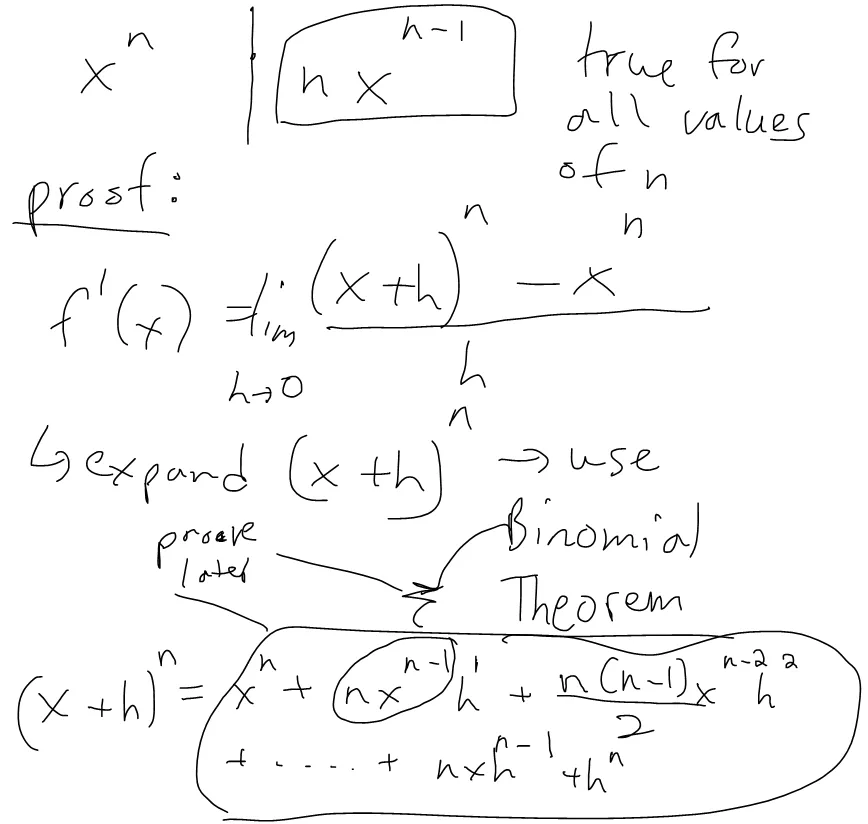 xⁿ | n xⁿ⁻¹ true for
all values
of n
proof:
f'(x) = lim h→0 ((x+h)ⁿ − xⁿ) / h
↳ expand (x+h)ⁿ → use
Binomial
Theorem
prove
later
(x+h)ⁿ = xⁿ + nxⁿ⁻¹h¹ + n(n-1)/2 xⁿ⁻²h²
+ ..... + nxhⁿ⁻¹ + hⁿ